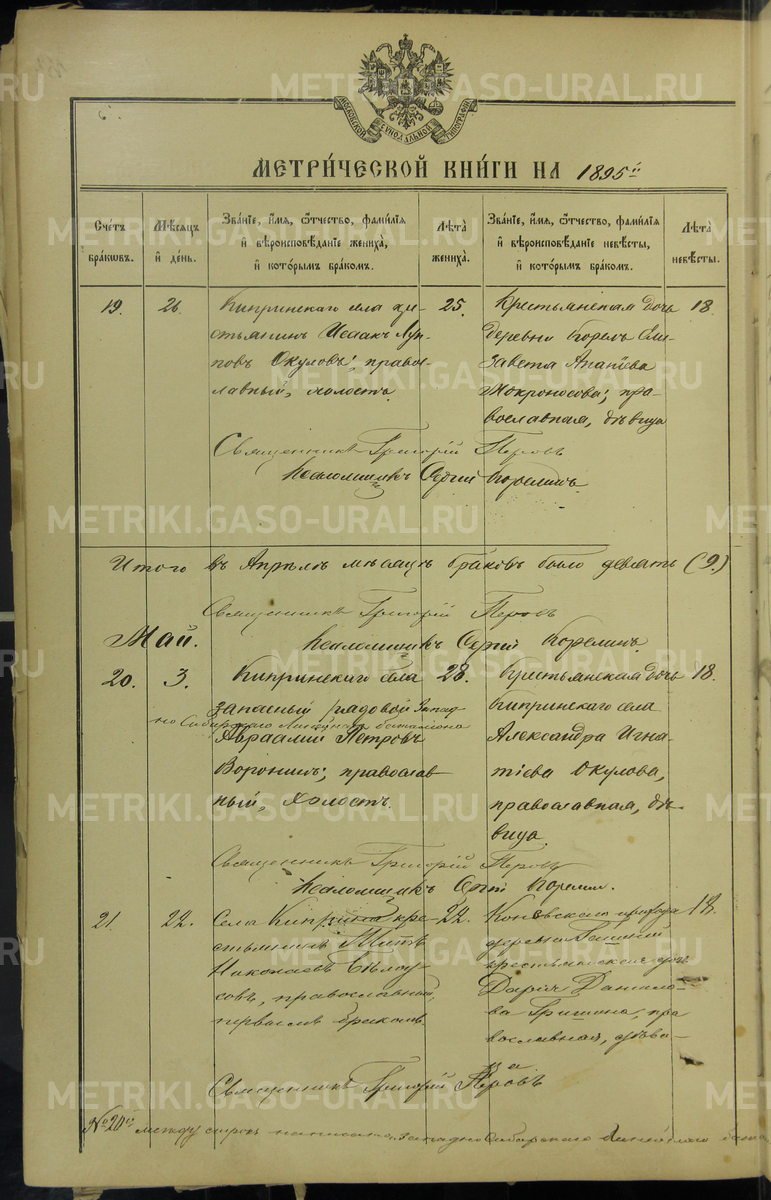 МОСКОВСКОЙ СѴНОДАЛЬНОЙ ТИПОГРАФІИ
МЕТРИ́ЧЕСКОЙ КНИ́ГИ НА 1895й
Сче́тъ бра́ковъ.
Мѣ́сяцъ и́ де́нь.
Зва́нїе, и́мя, ѻ҆́тчество, фами́лїя и҆ вѣроисповѣ́данїе жениха̀, и҆ кото́рымъ бра́комъ.
Лѣ́та жениха̀.
Зва́нїе, и́мя, ѻ҆́тчество, фами́лїя и҆ вѣроисповѣ́данїе невѣ́сты, и҆ кото́рымъ бра́комъ.
Лѣ́та невѣ́сты.
19.
26.
Кипринскаго села кре-
стьянинъ Исаакъ Луп-
повъ Окуловъ; право-
лавный, холостъ
25.
Крестьянская дочь
деревни Ели-
завета Ананіева
Мокроносова; пра-
вославная, дѣвица
18.
Священникъ Григорій Перовъ
Псаломщикъ Сергій Корелинъ.
Итого въ Апрѣлѣ мѣсяцѣ браковъ было девять (9.)
Священникъ Григорій Перовъ
Май.
Псаломщикъ Сергій Корелинъ.
20.
3.
Кипринскаго села
запасный рядовой Запад
но Сибирскаго Линейнаго баталіона
Авраамій Петровъ
Воронинъ; православ-
ный, холостъ.
28.
Крестьянская дочь
Кипринскаго села
Александра Игна-
тіева Окулова,
православная, дѣ-
вица
18.
Священникъ Григорій Перовъ
Псаломщикъ Сергій Корелин.
21.
22.
Села Киприна кре-
стьянинъ Титъ
Николаевъ Бѣлоу-
совъ, православный,
первымъ бракомъ.
22.
Коневскаго прихода
деревни
крестьянская дочь
Дарія Данило-
ва Гришина, пра
вославная, дѣви-
ца
18.
Священникъ Григорій Перовъ
№20й между строкъ написано Западно Сибирскаго Линейнаго бата
METRIKI.GASO-URAL.RU